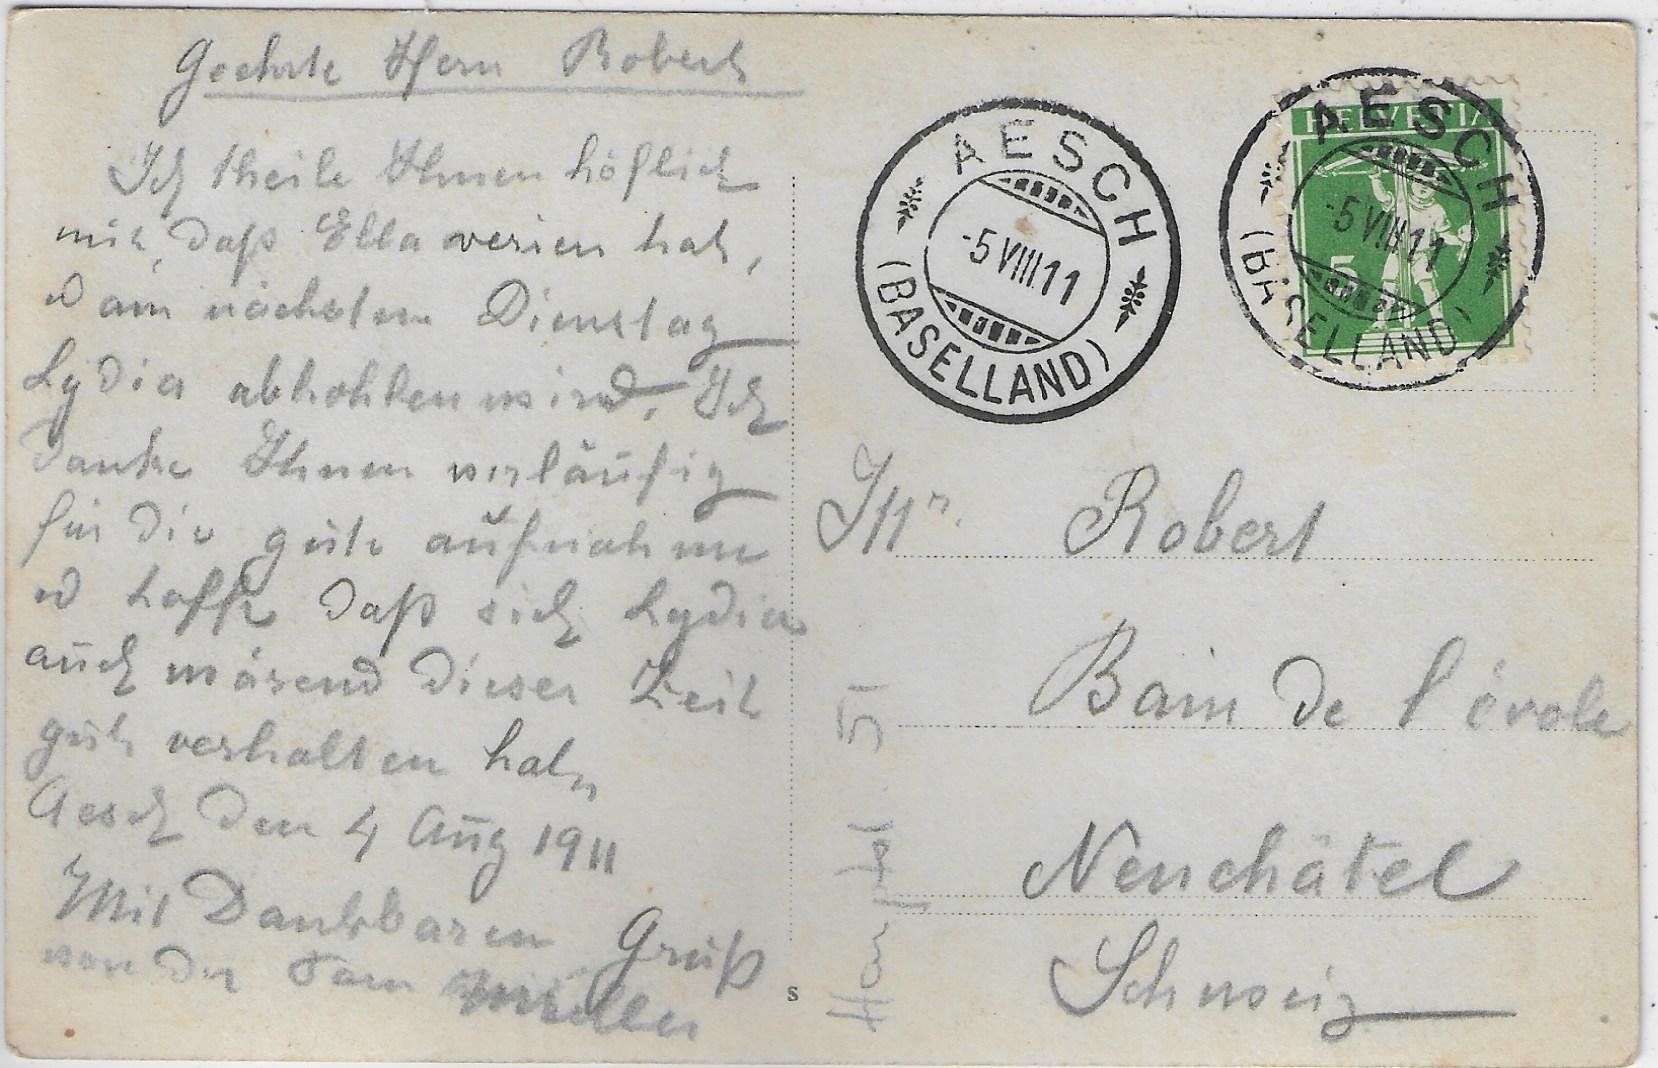 Geehrte Herr Robert
Ich theile Ihnen höflich
mit, daß Ella verien hat,
u am nächsten Dienstag
Lydia abhohlen wird. Ich
danke Ihnen vorläufig
für die gute aufnahme
u hoffe daß sich Lydia
auch wärend dieser Zeit
gut verhalten hat,
Aesch den 4 Aug 1911
Mit Dankbaren Gruß
von der Fam Müller
AESCH
-5 VIII 11
(BASELLAND)
HELVETIA
5
AESCH
-5 VIII 11
(BASELLAND)
Robert
Bain de l'évole
Neuchâtel
Schweiz
s